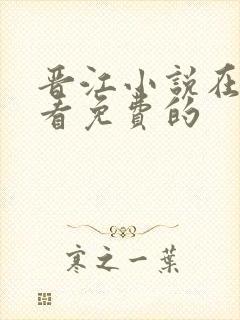 晋江小说在
看免费的
寒之一葉